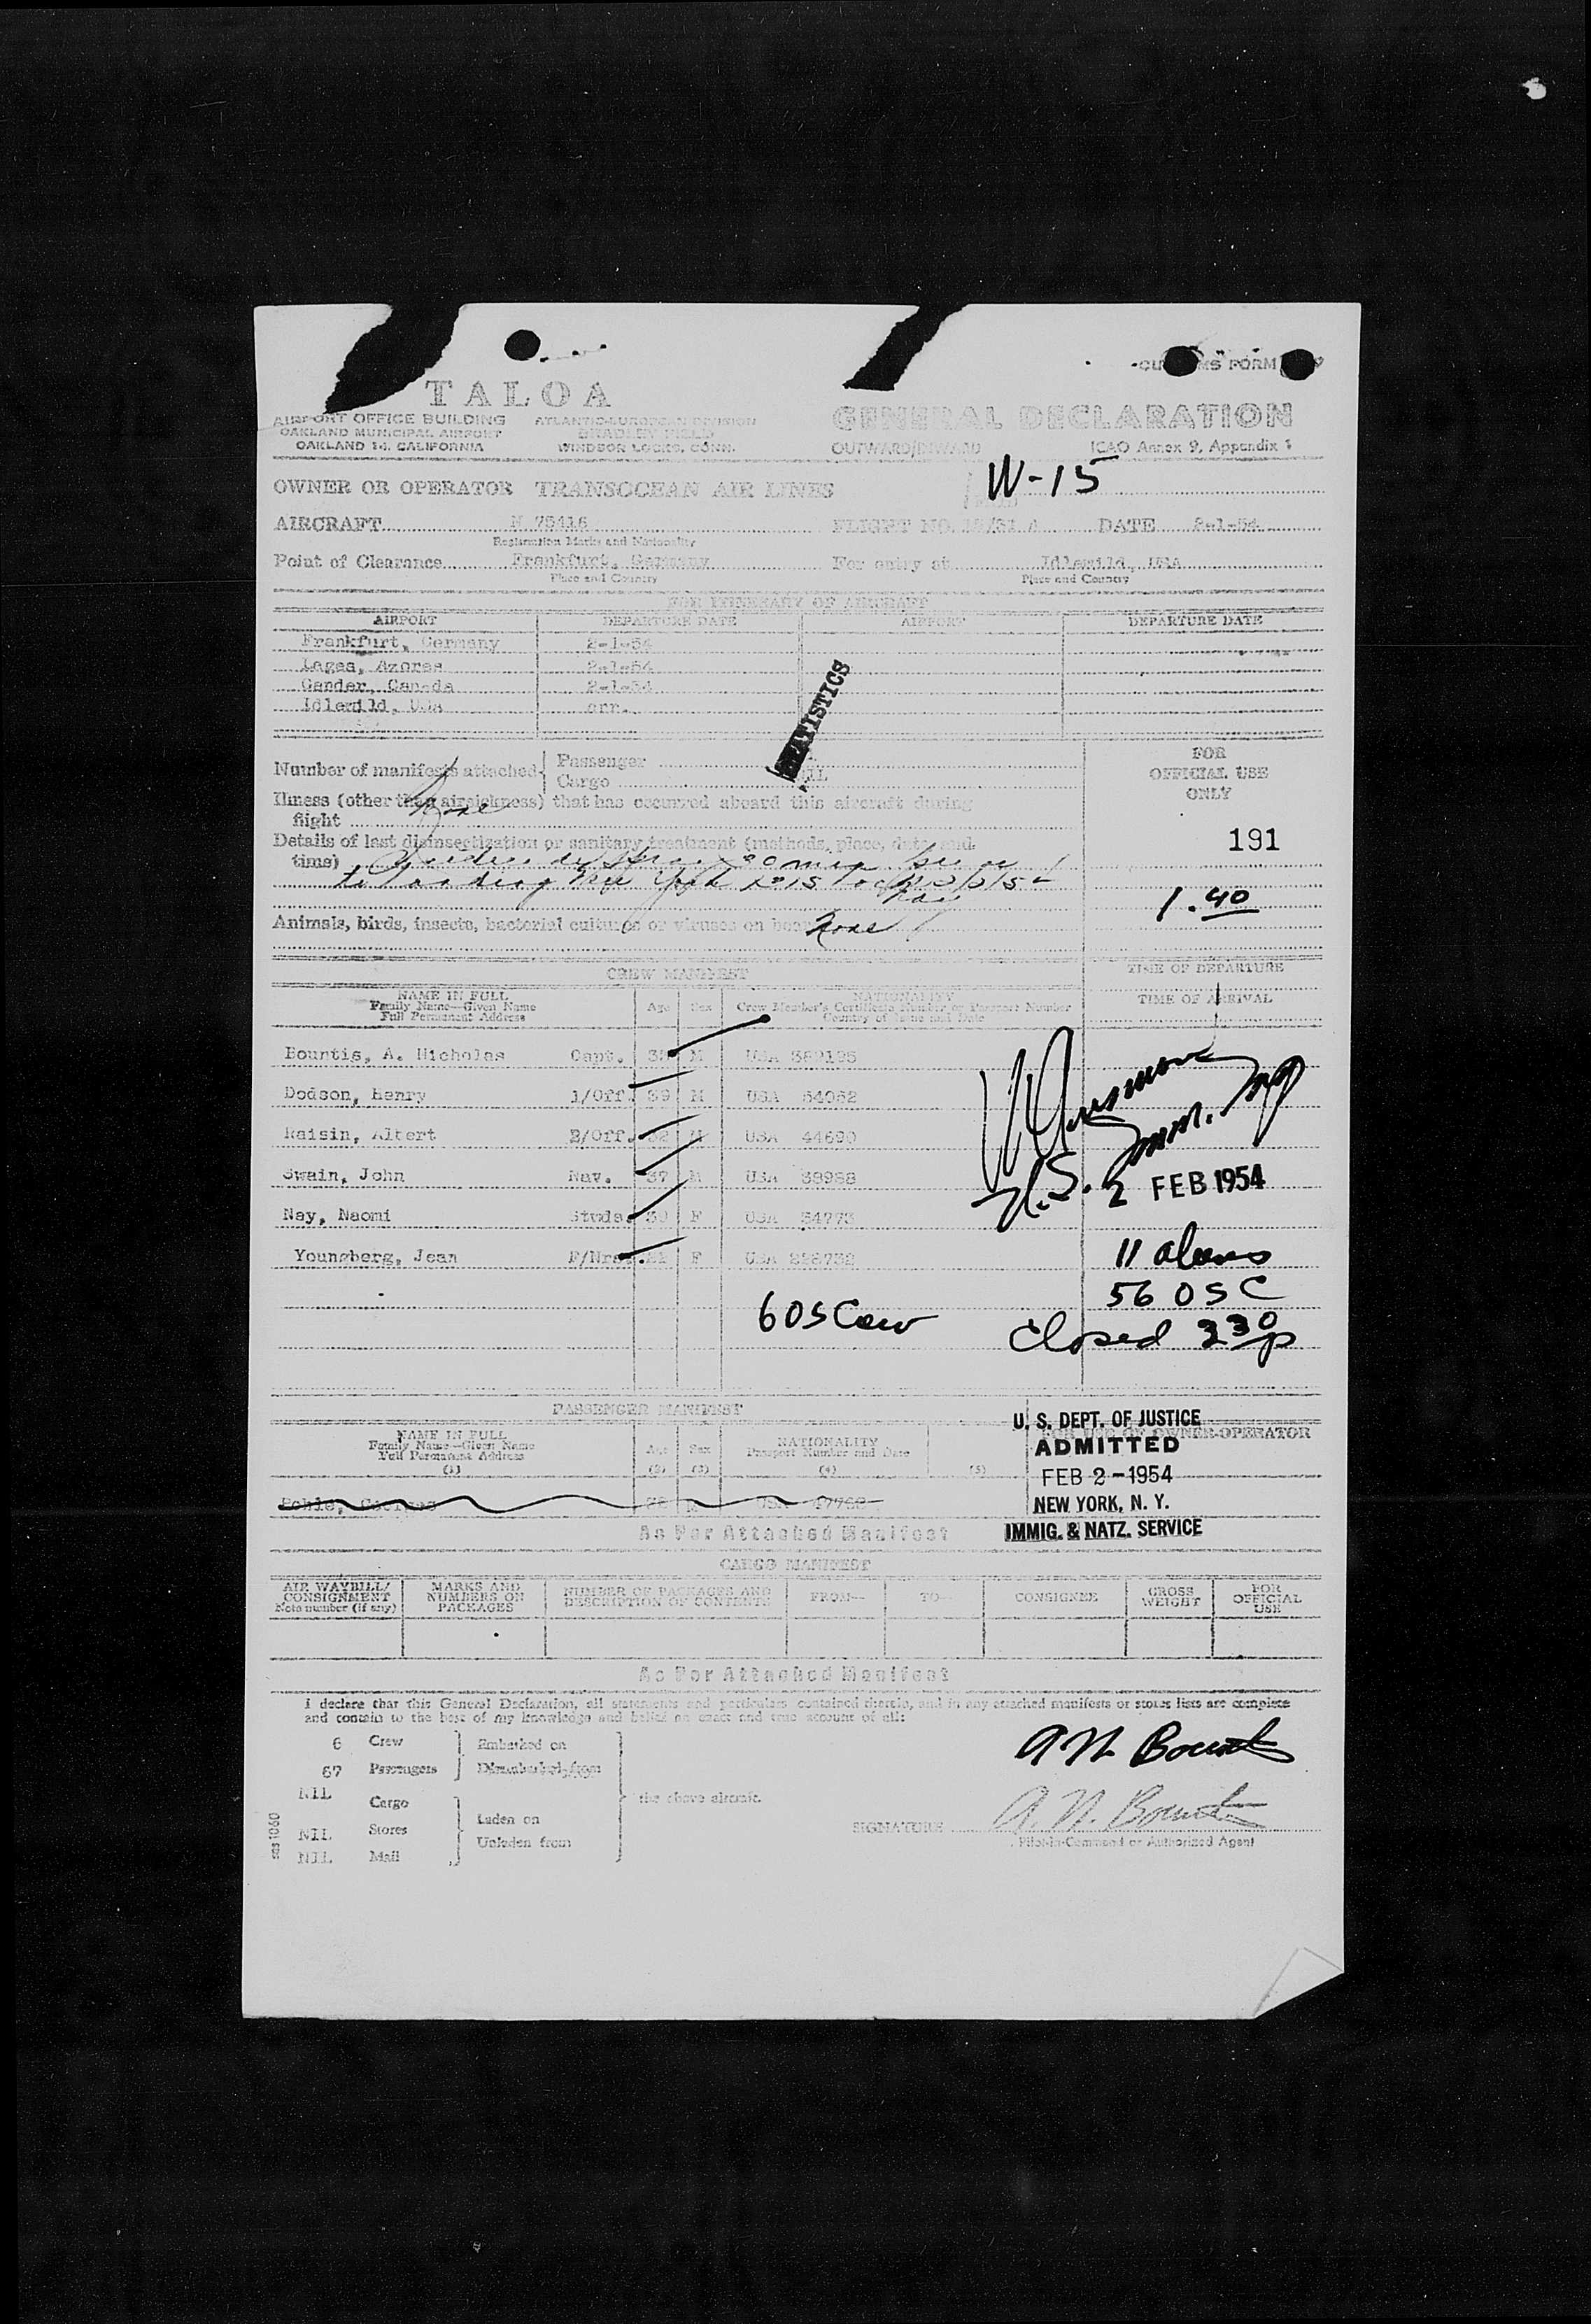 TALOA
AIRPORT OFFICE BUILDING
OAKLAND MUNICIPAL AIRPORT
OAKLAND 14, CALIFORNIA
ATLANTIC-EUROPEAN DIVISION
BRADLEY FIELD
WINDSOR LOCKS, CONN.
CUSTOMS FORM
GENERAL DECLARATION
OUTWARD/INWARD
ICAO Annex 9, Appendix 1
W-15
OWNER OR OPERATOR TRANSOCEAN AIR LINES
AIRCRAFT N 75416
Registration Marks and Nationality
FLIGHT NO. DATE 2-1-54
Point of Clearance Frankfurt, Germany
Place and Country
For entry at Idlewild, USA
Place and Country
FOR ITINERARY OF AIRCRAFT
AIRPORT DEPARTURE DATE AIRPORT DEPARTURE DATE
Frankfurt, Germany 2-1-54
Lages, Azores 2-1-54
Gander, Canada 2-1-54
Idlewild, USA arr.
STATISTICS
Number of manifests attached Passenger
Cargo NIL
FOR
OFFICIAL USE
ONLY
Illness (other than airsickness) that has occurred aboard this aircraft during
flight None
Details of last disinsectization or sanitary treatment (methods, place, date and
time)
to landing New York
191
1.40
Animals, birds, insects, bacterial cultures or viruses on board None
CREW MANIFEST
TIME OF DEPARTURE
TIME OF ARRIVAL
NAME IN FULL
Family Name—Given Name
Full Permanent Address
Age Sex
NATIONALITY
Crew Member's Certificate Number or Passport Number
Country of Issue and Date
Bountis, A. Nicholas Capt. M USA 362195
Dodson, Henry 1/Off. 39 M USA 54062
Raisin, Albert 2/Off. 32 M USA 44690
Swain, John Nav. 37 M USA 39988
Nay, Naomi Stwds. 30 F USA 54773
Youngberg, Jean F/Nrs. F USA 226732
U.S. Imm. Insp
2 FEB 1954
11 aliens
56 OSC
6 OSCew
Closed 330p
PASSENGER MANIFEST
NAME IN FULL
Family Name—Given Name
Full Permanent Address
(1)
Age
(2)
Sex
(3)
NATIONALITY
Passport Number and Date
(4)
(5)
FOR USE OF OWNER-OPERATOR
U. S. DEPT. OF JUSTICE
ADMITTED
FEB 2-1954
NEW YORK, N. Y.
IMMIG. & NATZ. SERVICE
As Per Attached Manifest
CARGO MANIFEST
AIR WAYBILL/
CONSIGNMENT
Note number (if any)
MARKS AND
NUMBERS ON
PACKAGES
NUMBER OF PACKAGES AND
DESCRIPTION OF CONTENTS
FROM—
TO—
CONSIGNEE
GROSS
WEIGHT
FOR
OFFICIAL
USE
As Per Attached Manifest
I declare that this General Declaration, all statements and particulars contained therein, and in any attached manifests or stores lists are complete
and contain to the best of my knowledge and belief an exact and true account of all:
6 Crew
67 Passengers
Embarked on
Disembarked from
NIL Cargo
NIL Stores
NIL Mail
Laden on
Unladen from
the above aircraft.
A N Bountis
SIGNATURE A. N. Bountis
Pilot-in-Command or Authorized Agent